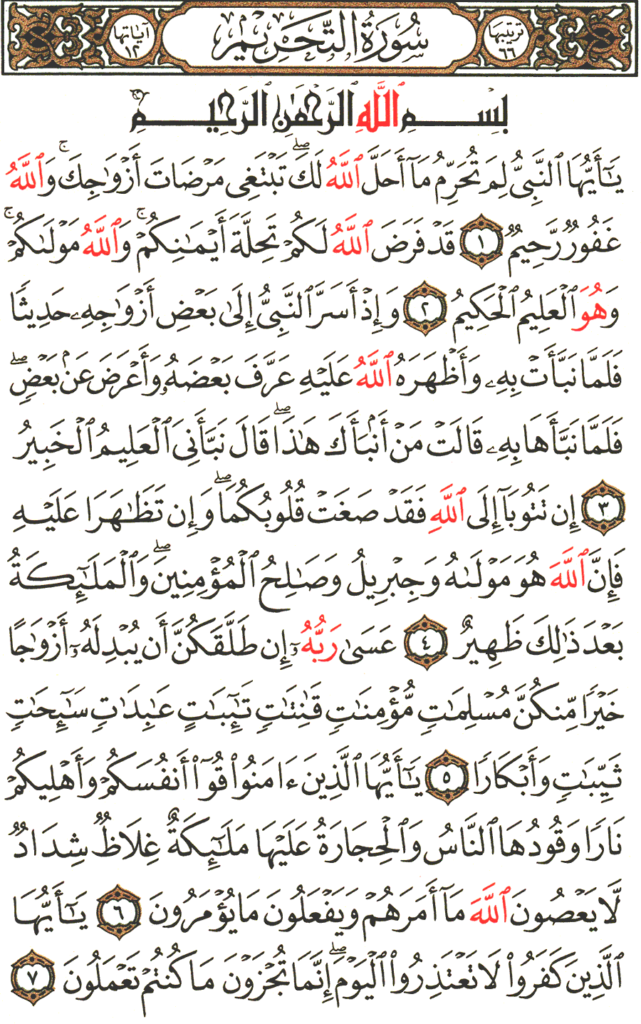 ترتيبها ٦٦ سُورَةُ التَّحْرِيمِ آياتها ١٢
بِسْمِ ٱللَّهِ ٱلرَّحْمَٰنِ ٱلرَّحِيمِ
يَـٰٓأَيُّهَا ٱلنَّبِىُّ لِمَ تُحَرِّمُ مَآ أَحَلَّ ٱللَّهُ لَكَ ۖ تَبْتَغِى مَرْضَاتَ أَزْوَٰجِكَ ۚ وَٱللَّهُ
غَفُورٌ رَّحِيمٌ ١ قَدْ فَرَضَ ٱللَّهُ لَكُمْ تَحِلَّةَ أَيْمَـٰنِكُمْ ۚ وَٱللَّهُ مَوْلَىٰكُمْ ۖ
وَهُوَ ٱلْعَلِيمُ ٱلْحَكِيمُ ٢ وَإِذْ أَسَرَّ ٱلنَّبِىُّ إِلَىٰ بَعْضِ أَزْوَٰجِهِۦ حَدِيثًا
فَلَمَّا نَبَّأَتْ بِهِۦ وَأَظْهَرَهُ ٱللَّهُ عَلَيْهِ عَرَّفَ بَعْضَهُۥ وَأَعْرَضَ عَنۢ بَعْضٍ ۖ
فَلَمَّا نَبَّأَهَا بِهِۦ قَالَتْ مَنْ أَنۢبَأَكَ هَـٰذَا ۖ قَالَ نَبَّأَنِىَ ٱلْعَلِيمُ ٱلْخَبِيرُ
٣ إِن تَتُوبَآ إِلَى ٱللَّهِ فَقَدْ صَغَتْ قُلُوبُكُمَا ۖ وَإِن تَظَـٰهَرَا عَلَيْهِ
فَإِنَّ ٱللَّهَ هُوَ مَوْلَىٰهُ وَجِبْرِيلُ وَصَـٰلِحُ ٱلْمُؤْمِنِينَ ۖ وَٱلْمَلَـٰٓئِكَةُ
بَعْدَ ذَٰلِكَ ظَهِيرٌ ٤ عَسَىٰ رَبُّهُۥٓ إِن طَلَّقَكُنَّ أَن يُبْدِلَهُۥٓ أَزْوَٰجًا
خَيْرًا مِّنكُنَّ مُسْلِمَـٰتٍ مُّؤْمِنَـٰتٍ قَـٰنِتَـٰتٍ تَـٰٓئِبَـٰتٍ عَـٰبِدَٰتٍ سَـٰٓئِحَـٰتٍ
ثَيِّبَـٰتٍ وَأَبْكَارًا ٥ يَـٰٓأَيُّهَا ٱلَّذِينَ ءَامَنُوا۟ قُوٓا۟ أَنفُسَكُمْ وَأَهْلِيكُمْ
نَارًا وَقُودُهَا ٱلنَّاسُ وَٱلْحِجَارَةُ عَلَيْهَا مَلَـٰٓئِكَةٌ غِلَاظٌ شِدَادٌ
لَّا يَعْصُونَ ٱللَّهَ مَآ أَمَرَهُمْ وَيَفْعَلُونَ مَا يُؤْمَرُونَ ٦ يَـٰٓأَيُّهَا
ٱلَّذِينَ كَفَرُوا۟ لَا تَعْتَذِرُوا۟ ٱلْيَوْمَ ۖ إِنَّمَا تُجْزَوْنَ مَا كُنتُمْ تَعْمَلُونَ ٧